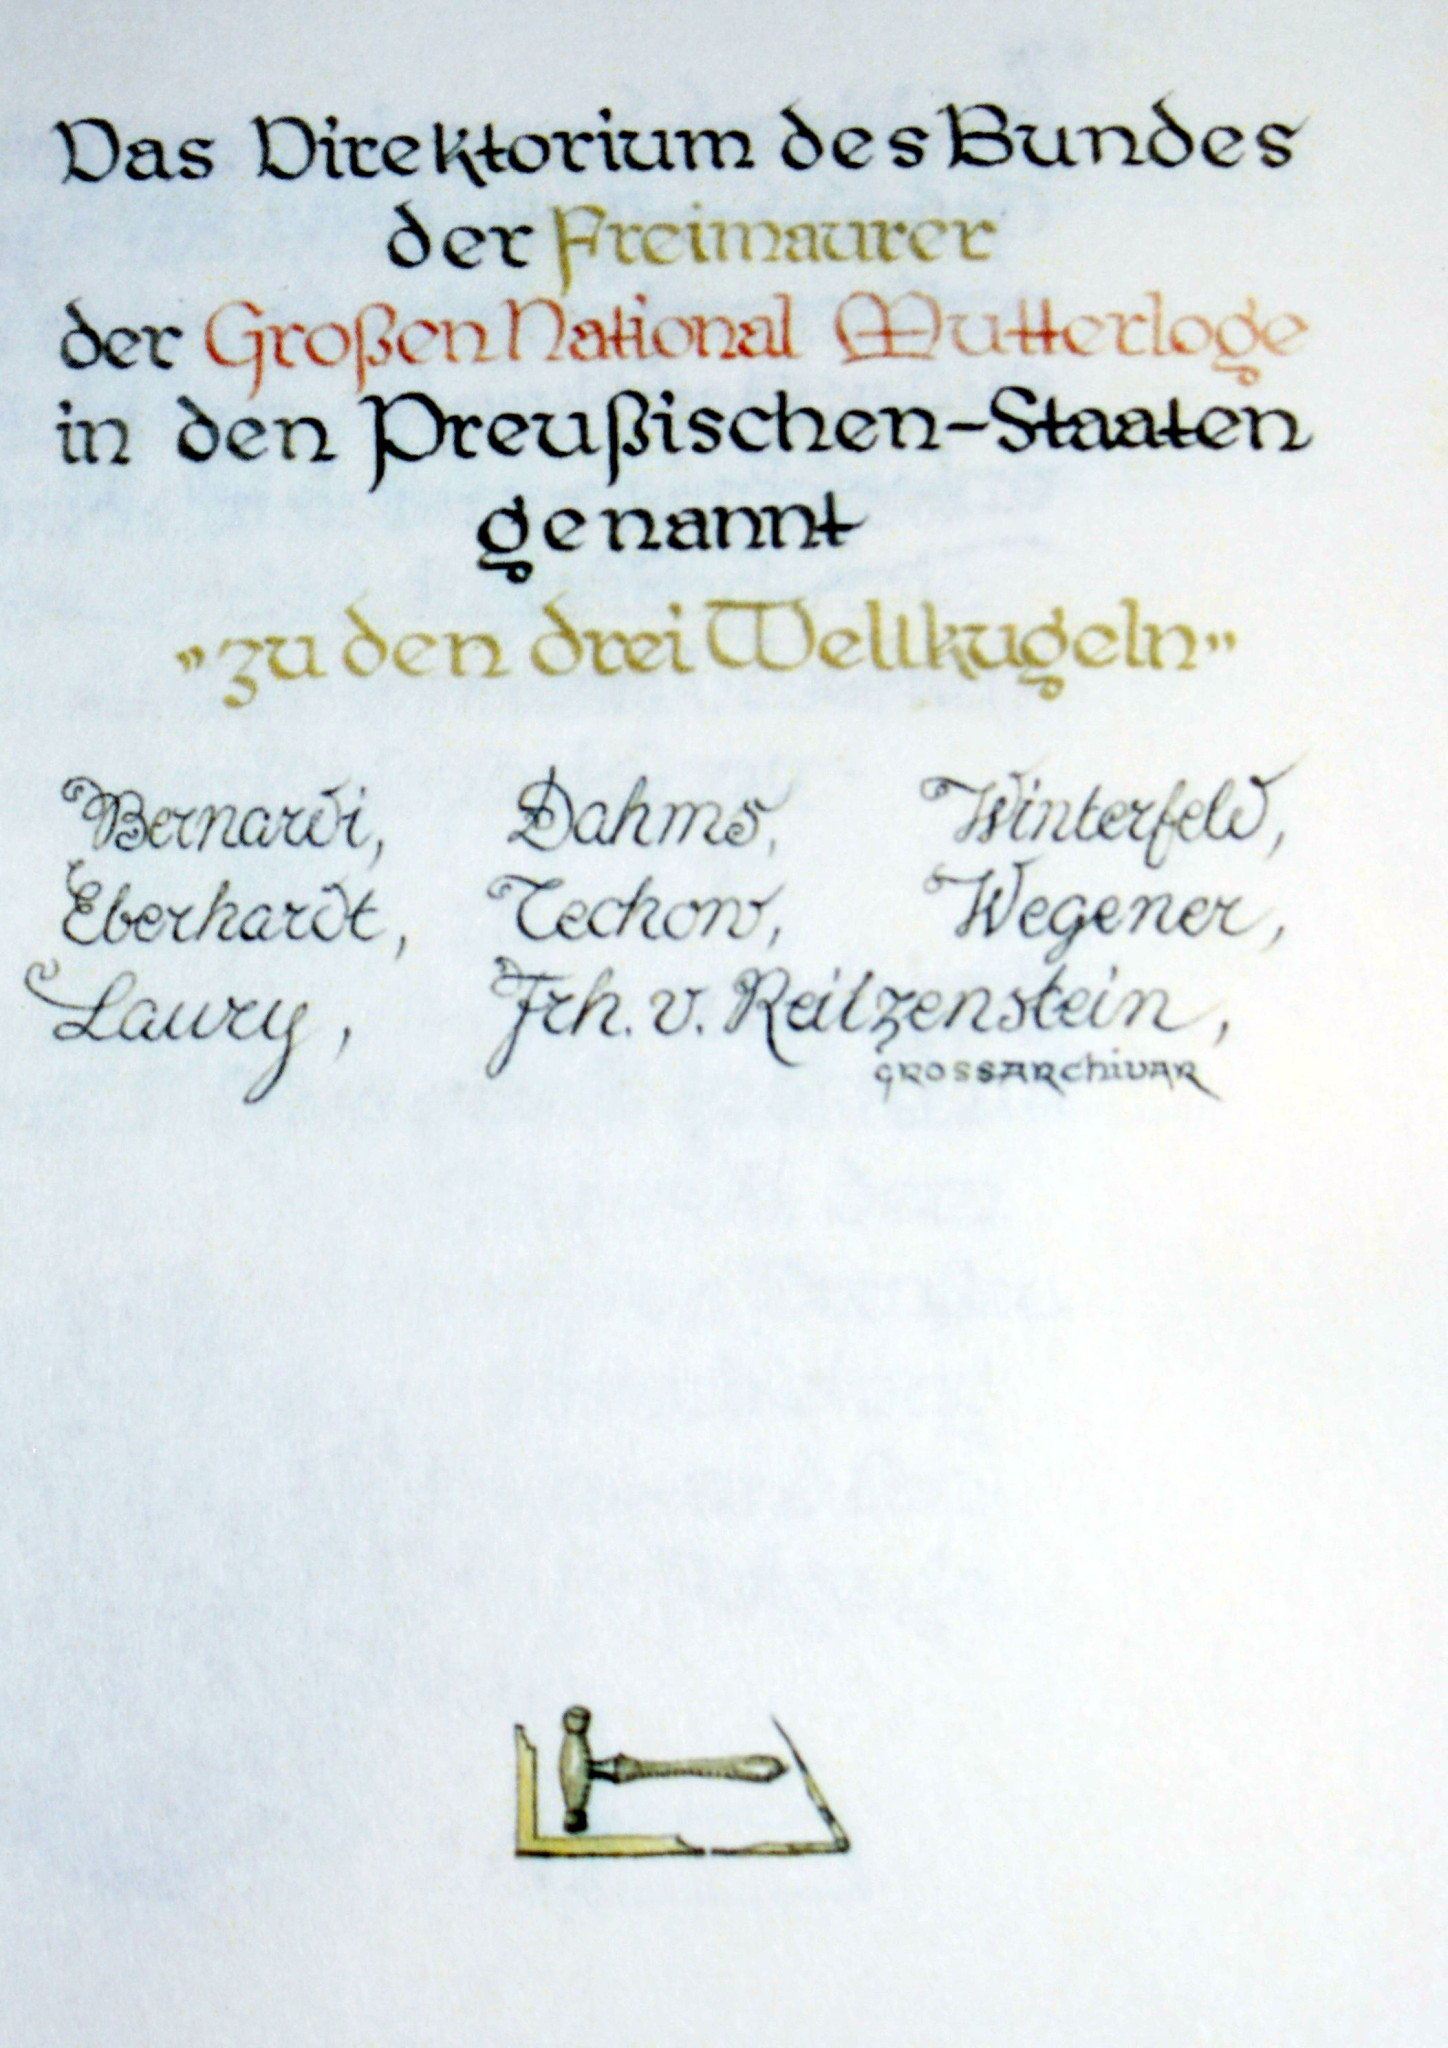 Das Direktorium des Bundes
der Freimaurer
der Großen National Mutterloge
in den Preußischen-Staaten
genannt
"zu den drei Weltkugeln"
Bernardi, Dahms, Winterfeld,
Eberhardt, Teckow, Wegener,
Laury, Frh. v. Reitzenstein,
GROSSARChIVAR